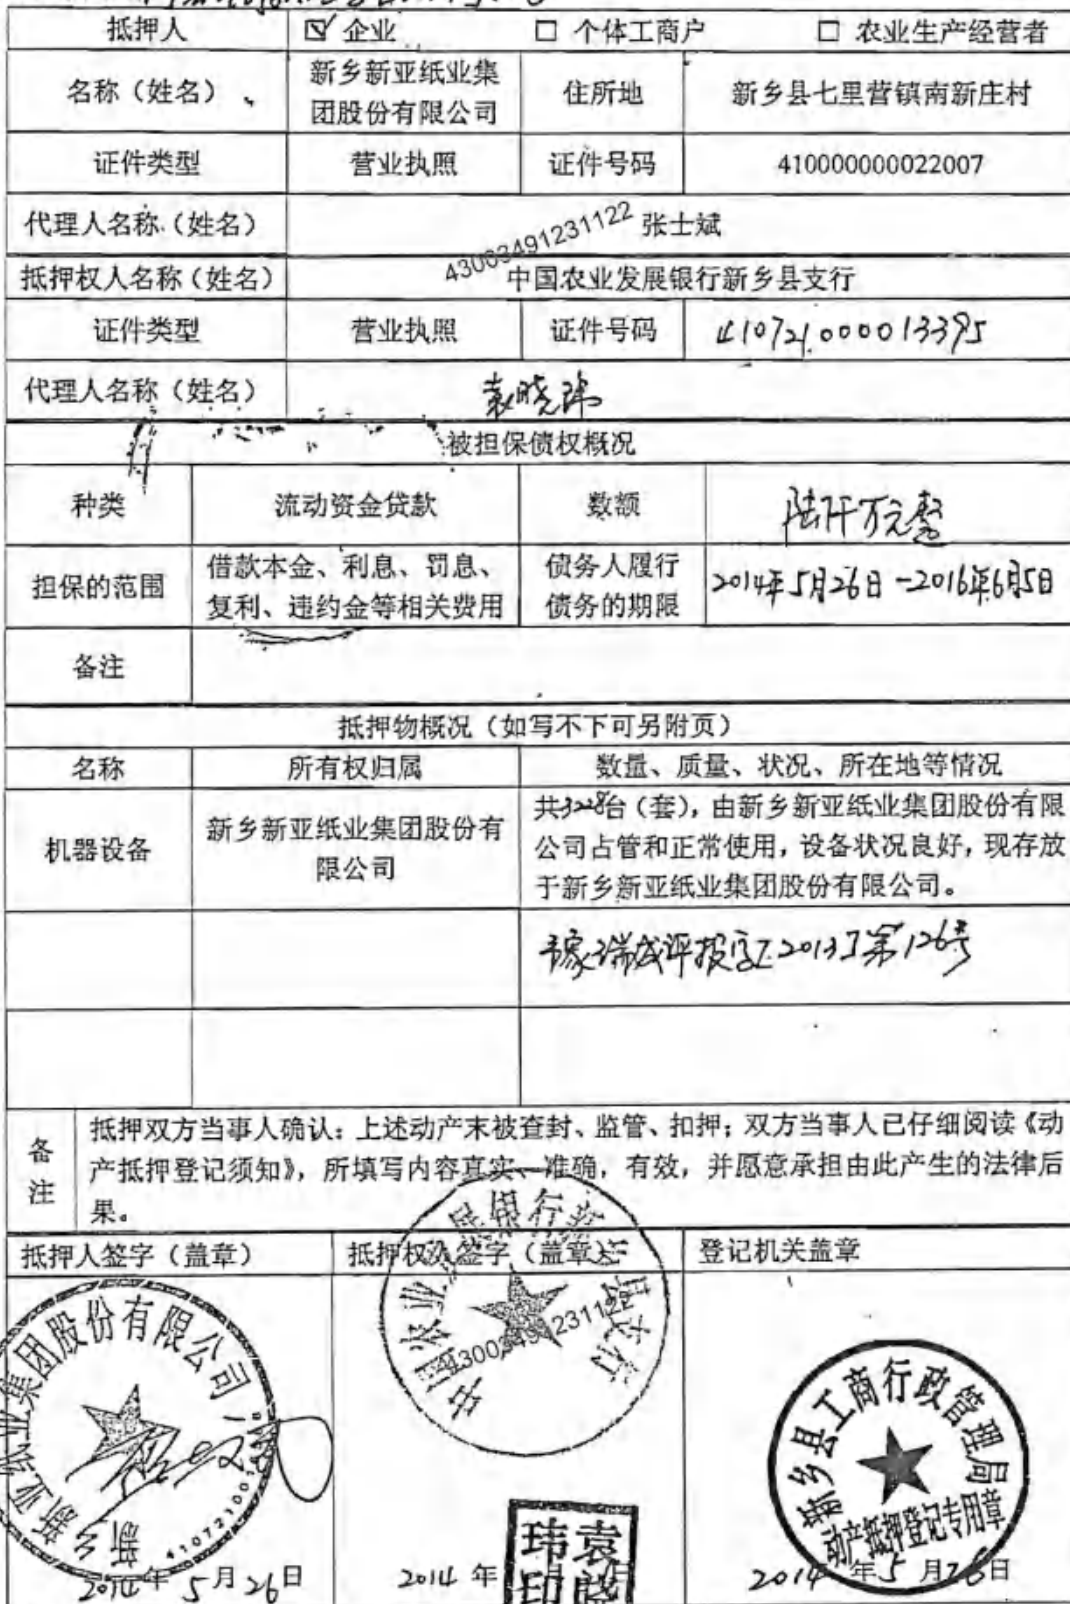 抵押人 ☑ 企业 □ 个体工商户 □ 农业生产经营者
名称（姓名） 新乡新亚纸业集团股份有限公司 住所地 新乡县七里营镇南新庄村
证件类型 营业执照 证件号码 410000000022007
代理人名称（姓名） 张士斌
43003491231122
抵押权人名称（姓名） 中国农业发展银行新乡县支行
证件类型 营业执照 证件号码 410721000013395
代理人名称（姓名） 袁晓玮
被担保债权概况
种类 流动资金贷款 数额 陆仟万元整
担保的范围 借款本金、利息、罚息、复利、违约金等相关费用 债务人履行债务的期限 2014年5月26日-2016年6月5日
备注
抵押物概况（如写不下可另附页）
名称 所有权归属 数量、质量、状况、所在地等情况
机器设备 新乡新亚纸业集团股份有限公司
共3228台（套），由新乡新亚纸业集团股份有限
公司占管和正常使用，设备状况良好，现存放
于新乡新亚纸业集团股份有限公司。
豫瑞成评报字[2013]第126号
备注
抵押双方当事人确认：上述动产未被查封、监管、扣押；双方当事人已仔细阅读《动
产抵押登记须知》，所填写内容真实、准确，有效，并愿意承担由此产生的法律后
果。
抵押人签字（盖章） 抵押权人签字（盖章） 登记机关盖章
新乡新亚纸业集团股份有限公司
中国农业发展银行新乡县支行
43003491231122
新乡县工商行政管理局
动产抵押登记专用章
袁晓玮印
2014年5月26日 2014年 2014年5月26日